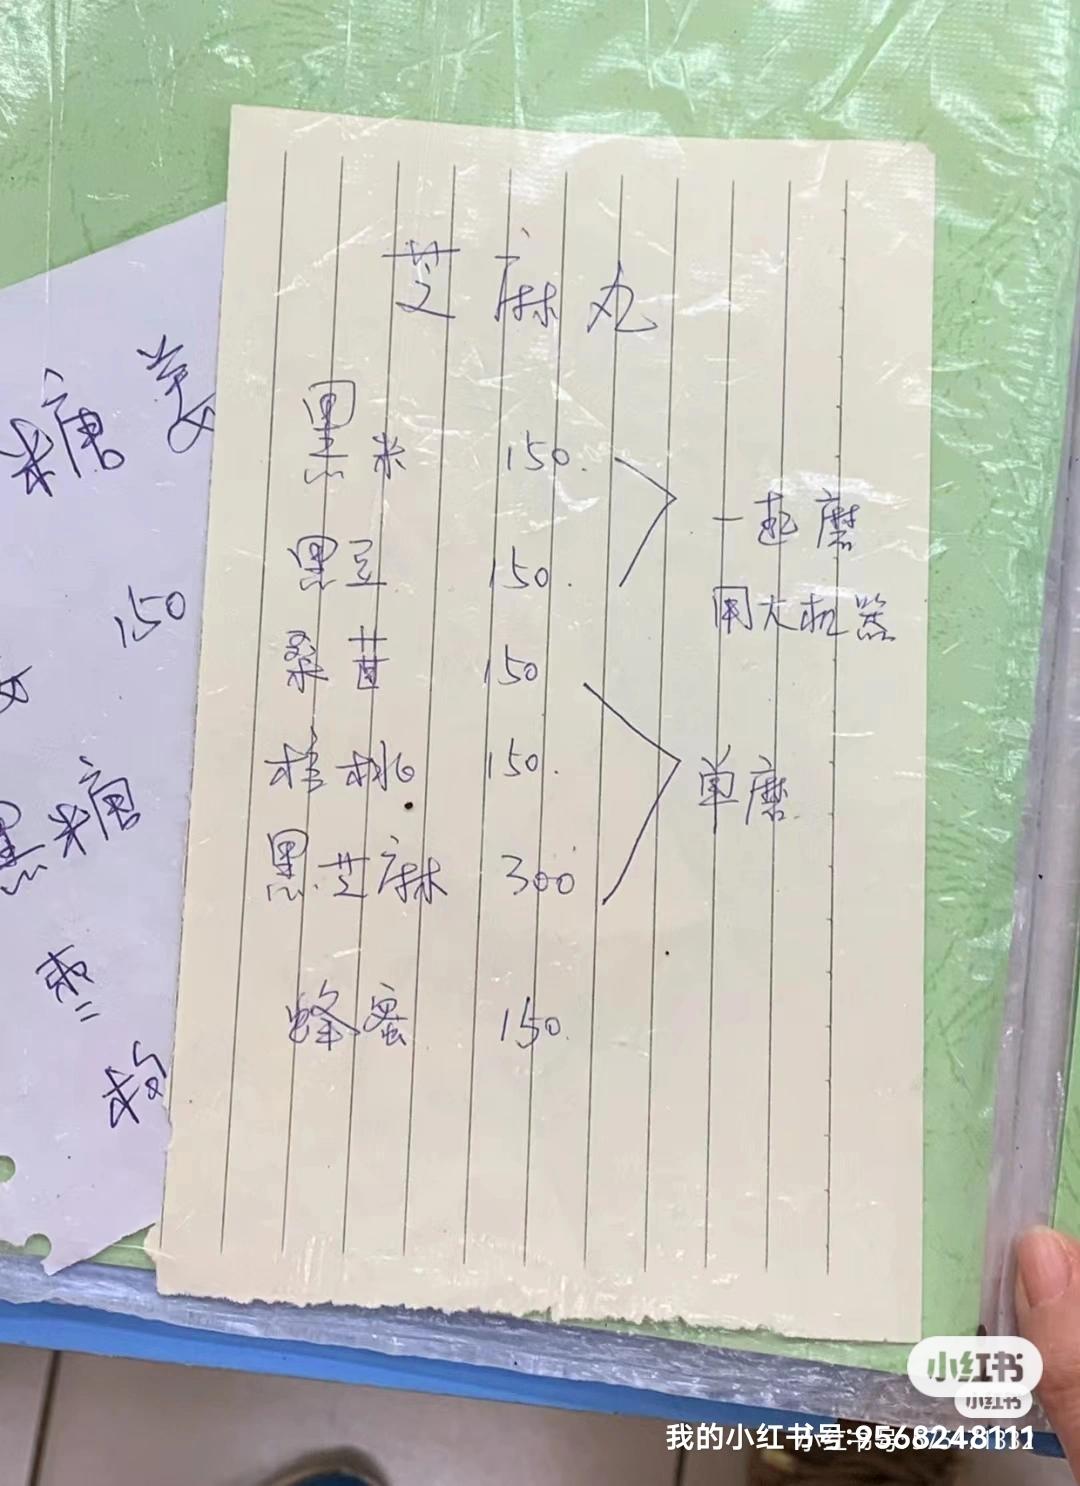 芝麻丸
黑米 150.
黑豆 150.
一起磨
用大机器
桑葚 150
核桃 150.
黑芝麻 300
单磨.
蜂蜜 150.
糖姜
150
黑糖
枣
小红书
小红书
我的小红书号:9568248111